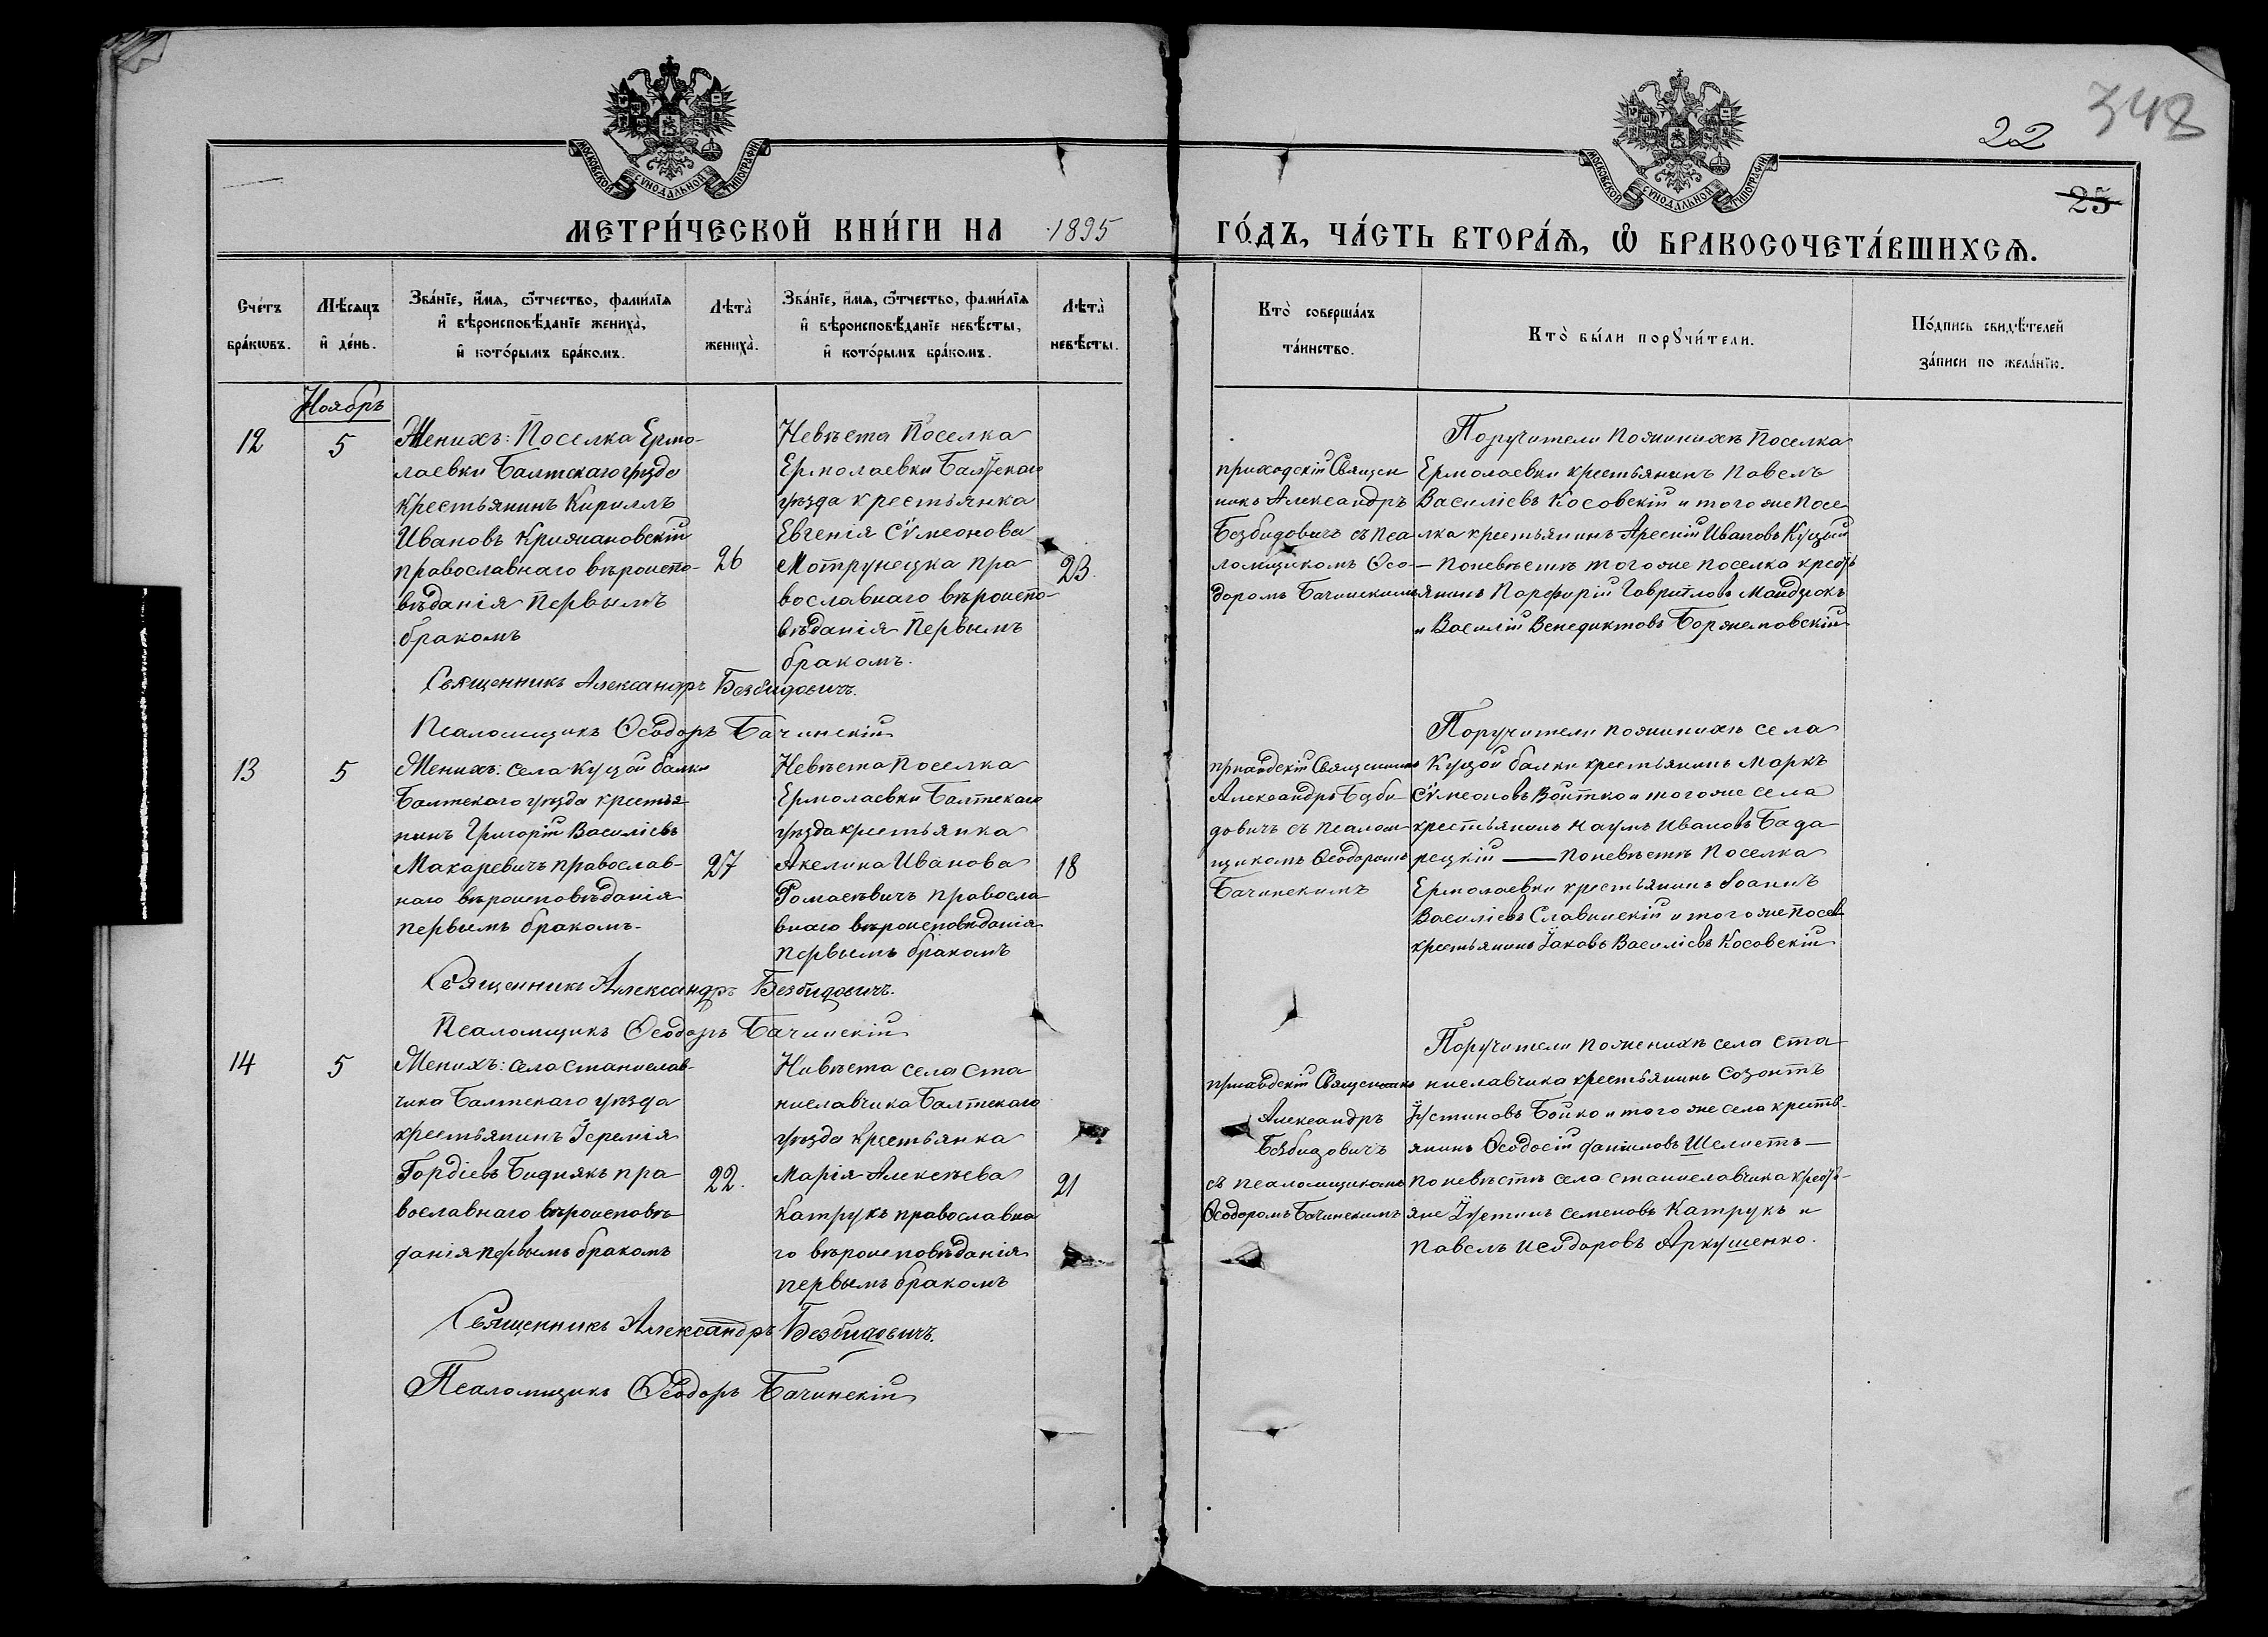 348
22
25
МОСКОВСКОЙ СѴНОДАЛЬНОЙ ТИПОГРАФІИ
МОСКОВСКОЙ СѴНОДАЛЬНОЙ ТИПОГРАФІИ
МЕТРИ́ЧЕСКОЙ КНИ́ГИ НА 1895
ГО́ДЪ, ЧА́СТЬ ВТОРА́Я, Ѿ БРАКОСОЧЕТА́ВШИХСЯ.
Сче́тъ бра́ковъ.
Мѣ́сяцъ и҆ де́нь.
Зва́нїе, и҆́мя, ѻ҆́тчество, фами́лїя
и҆ вѣроисповѣ́данїе жениха̀,
и҆ кото́рымъ бра́комъ.
Лѣта̀ жениха̀.
Зва́нїе, и҆́мя, ѻ҆́тчество, фами́лїя
и҆ вѣроисповѣ́данїе невѣ́сты,
и҆ кото́рымъ бра́комъ.
Лѣта̀ невѣ́сты.
Кто̀ соверша́лъ
та́инство.
Кто̀ бы́ли порꙋчи́тели.
По́дпись свидѣ́телей
за́писи по жела́нїю.
Ноябрь
12
5
Женихъ: Поселка Ермо-
лаевки Балтскаго уѣзда
крестьянинъ Кириллъ
Ивановъ Крижановскій
православнаго вѣроиспо-
вѣданія первымъ
бракомъ
26
Невѣста Поселка
Ермолаевки Балтскаго
уѣзда крестьянка
Евгенія Сѵмеонова
Мотрунецка пра
вославнаго вѣроиспо-
вѣданія первымъ
бракомъ.
23.
приходскій Священ
никъ Александръ
Безбидовичъ съ пса
ломщикомъ Ѳео-
доромъ Бачинскимъ
Поручители по женихѣ поселка
Ермолаевки крестьянинъ Павелъ
Василіевъ Косовскій и того же посе
лка крестьянинъ Арсеній Ивановъ Куцый
— по невѣстѣ того же поселка крестъ
янинъ Порфирій Гавріиловъ Мандзюкъ
и Василій Венедиктовъ Боржемовскій
Священникъ Александръ Безбидовичъ.
Псаломщикъ Ѳеодоръ Бачинскій
13
5
Женихъ: села Куцой балки
Балтскаго уѣзда крестья
нинъ Григорій Василіевъ
Макаревичъ православ-
наго вѣроисповѣданія
первымъ бракомъ-
27
Невѣста Поселка
Ермолаевки Балтскаго
уѣзда крестьянка
Акелина Иванова
Ромасевичъ правосла
внаго вѣроисповѣданія
первымъ бракомъ
18
приходскій Священникъ
Александръ Безби
довичъ съ псалом
щикомъ Ѳеодоромъ
Бачинскимъ
Поручители по женихѣ села
Куцой балки крестьянинъ Маркъ
Сѵмеоновъ Войтко и того же села
крестьянинъ Наумъ Ивановъ Бада
рецкій — по невѣстѣ Поселка
Ермолаевки крестьянинъ Іоаннъ
Василіевъ Славинскій и того же посел
крестьянинъ Іаковъ Василіевъ Косовскій
Священникъ Александръ Безбидовичъ.
Псаломщикъ Ѳеодоръ Бачинскій
14
5
Женихъ: села Станислав-
чика Балтскаго уѣзда
крестьянинъ Іеремія
Гордіевъ Биднякъ пра
вославнаго вѣроисповѣ
данія первымъ бракомъ
22.
Нивѣста села Ста
ниславчика Балтскаго
уѣзда крестьянка
Марія Алексѣева
Катрукъ православна
го вѣроисповѣданія
первымъ бракомъ
21
приходскій Священникъ
Александръ
Безбидовичъ
съ псаломщикомъ
Ѳеодоромъ Бачинскимъ
Поручители по женихѣ села Ста
ниславчика крестьянинъ Созонтъ
Іустиновъ Бойко и того же села кресть-
янинъ Ѳеодосій Даниловъ Шелистъ —
по невѣстѣ села Станиславчика кресть-
яне Іустинъ Семеновъ Катрукъ и
Павелъ Исидоровъ Аркушенко.
Священникъ Александръ Безбидовичъ.
Псаломщикъ Ѳеодоръ Бачинскій